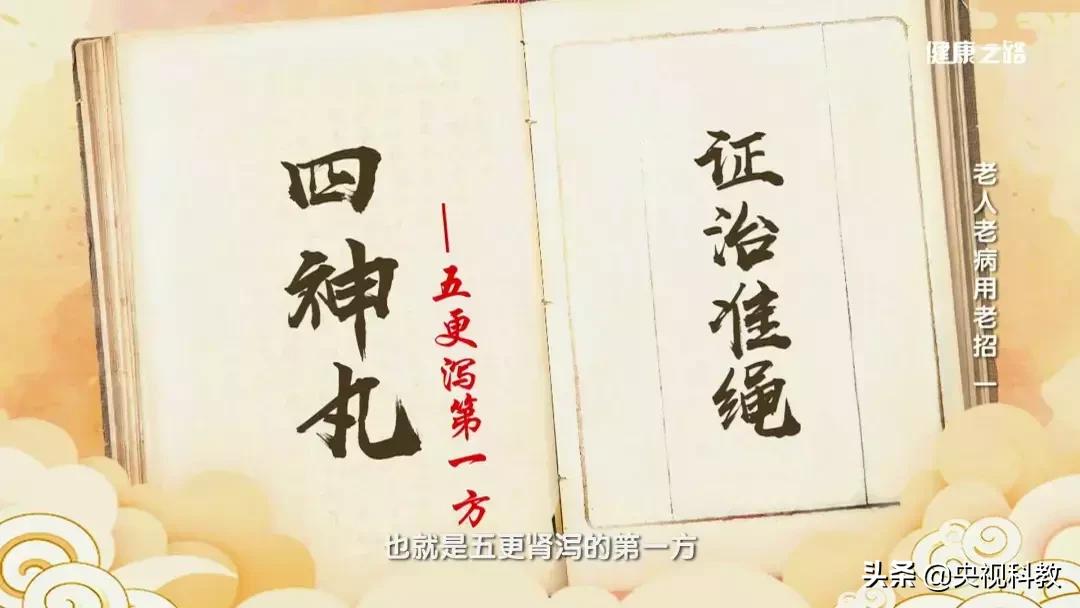 健康之路
老人老病用老招 一
证治准绳
四神丸
——五更泻第一方
也就是五更肾泻的第一方
头条 @央视科教